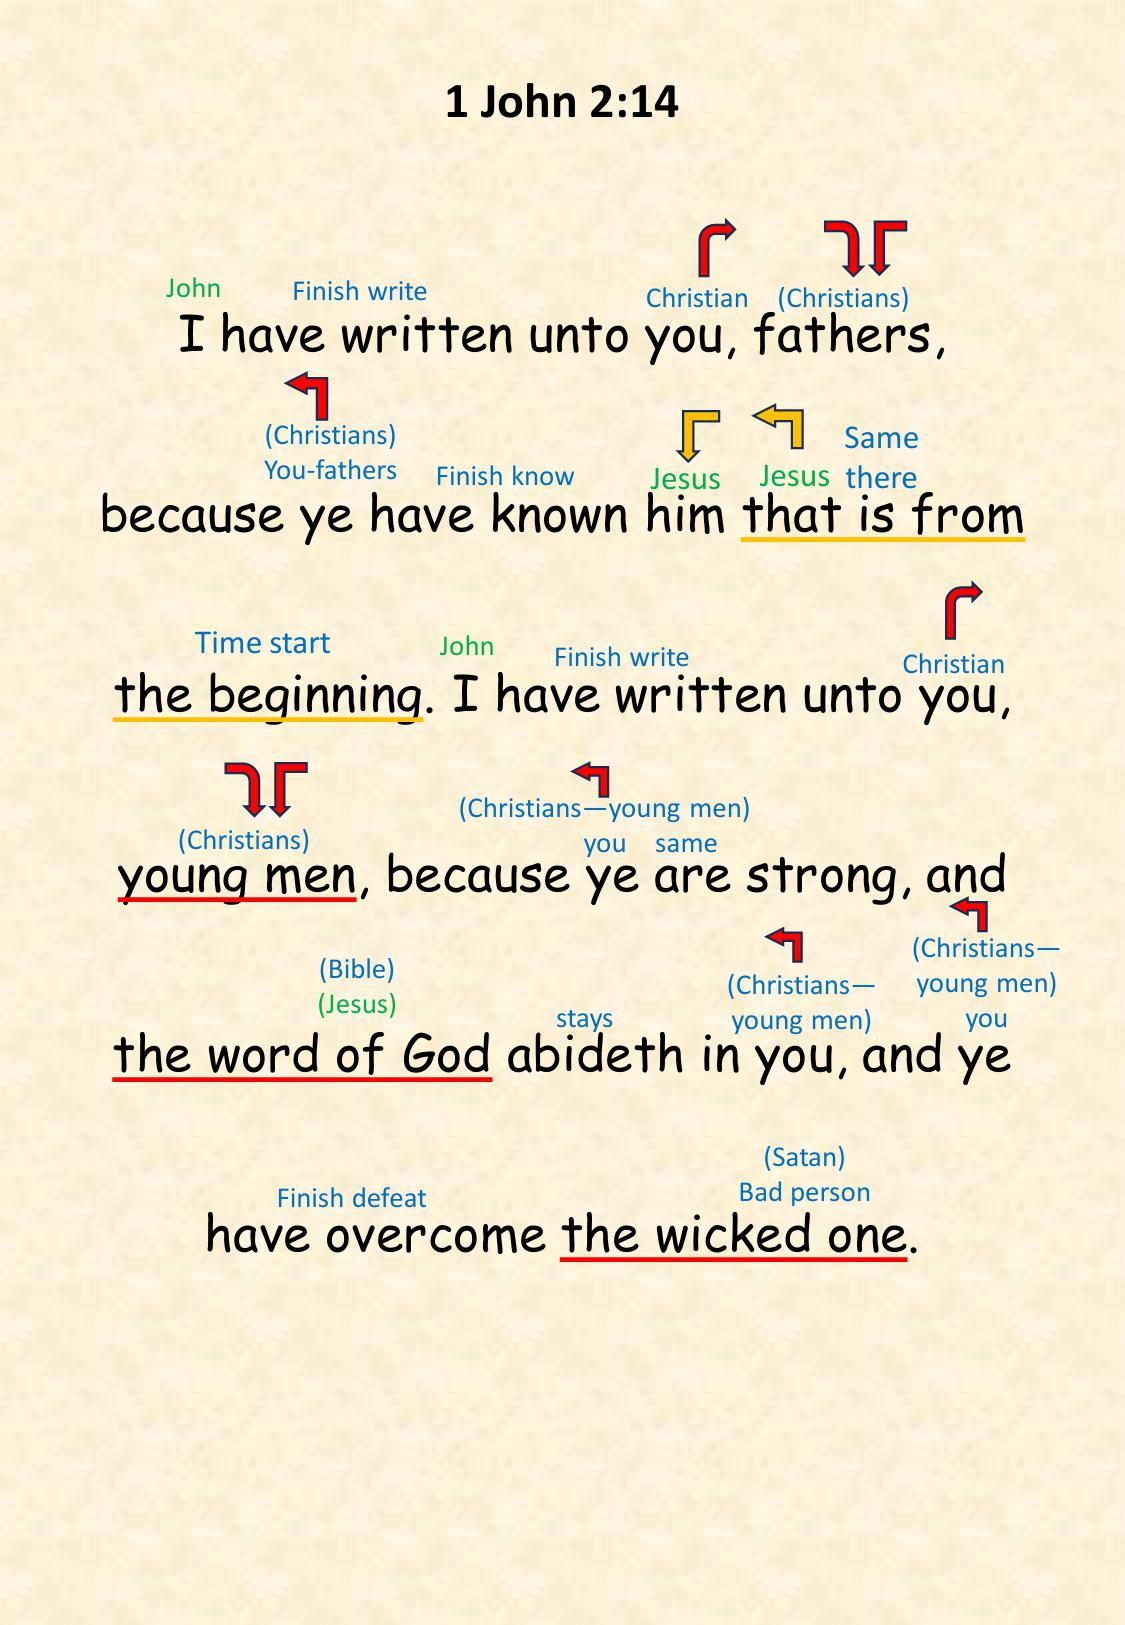 1 John 2:14
John Finish write Christian (Christians)
I have written unto you, fathers,
(Christians)
You-fathers Finish know Jesus Jesus Same there
because ye have known him that is from
Time start John Finish write Christian
the beginning. I have written unto you,
(Christians) (Christians—young men)
you same
young men, because ye are strong, and
(Bible)
(Jesus) stays (Christians—young men) (Christians—young men) you
the word of God abideth in you, and ye
(Satan)
Finish defeat Bad person
have overcome the wicked one.